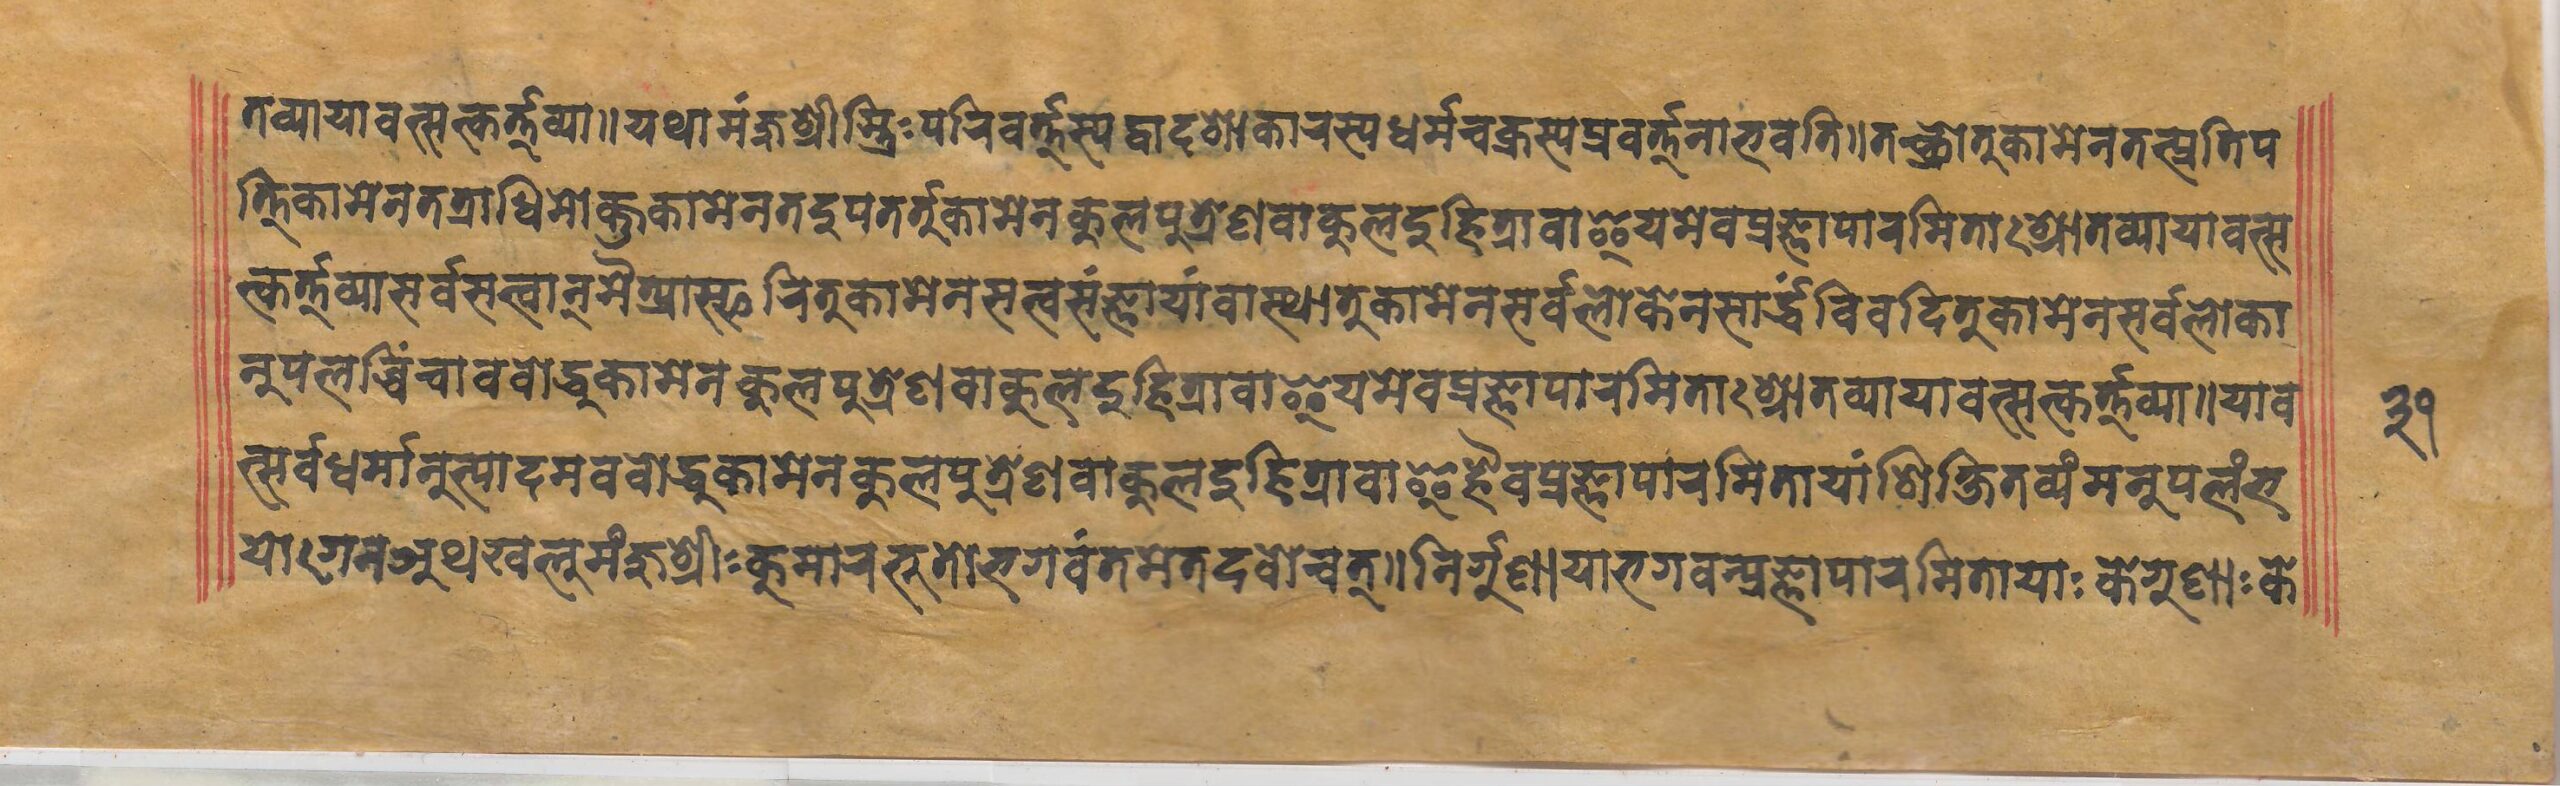 तव्यायावत्सत्कर्त्तव्या॥यथामंजुश्रीस्त्रिःपरिवर्त्तस्यद्वादशाकारस्यधर्मचक्रस्यप्रवर्त्तनाभवति॥तच्छ्रोतुकामेनतत्प्रतिप
त्तिकामेनतत्राधिमोक्तुकामेनतदुपतर्तुकामेनकुलपुत्रेणवाकुलदुहित्रावाइयमेवप्रज्ञापारमिताःश्रोतव्यायावत्स
त्कर्त्तव्यासर्वसत्वान्मैत्र्यास्फरितुकामेनसत्वसंज्ञायांवास्थातुकामेनसर्वलोकेनसार्द्धंविवदितुकामेनसर्वलोका
नुपलब्धिंचावबोद्धुकामेनकुलपुत्रेणवाकुलदुहित्रावाइयमेवप्रज्ञापारमिताःश्रोतव्यायावत्सत्कर्त्तव्या॥याव
त्सर्वधर्मानुत्पादमवबोद्धुकामेनकुलपुत्रेणवाकुलदुहित्रावाइहैवप्रज्ञापारमितायांशिक्षितव्यंमनुपलंभ
योःगेनअथखलुमंजुश्रीःकुमारभूतोभगवंतमेतदवोचत्॥निर्गुणायाभगवन्प्रज्ञापारमितायाःकेगुणाःके
३१